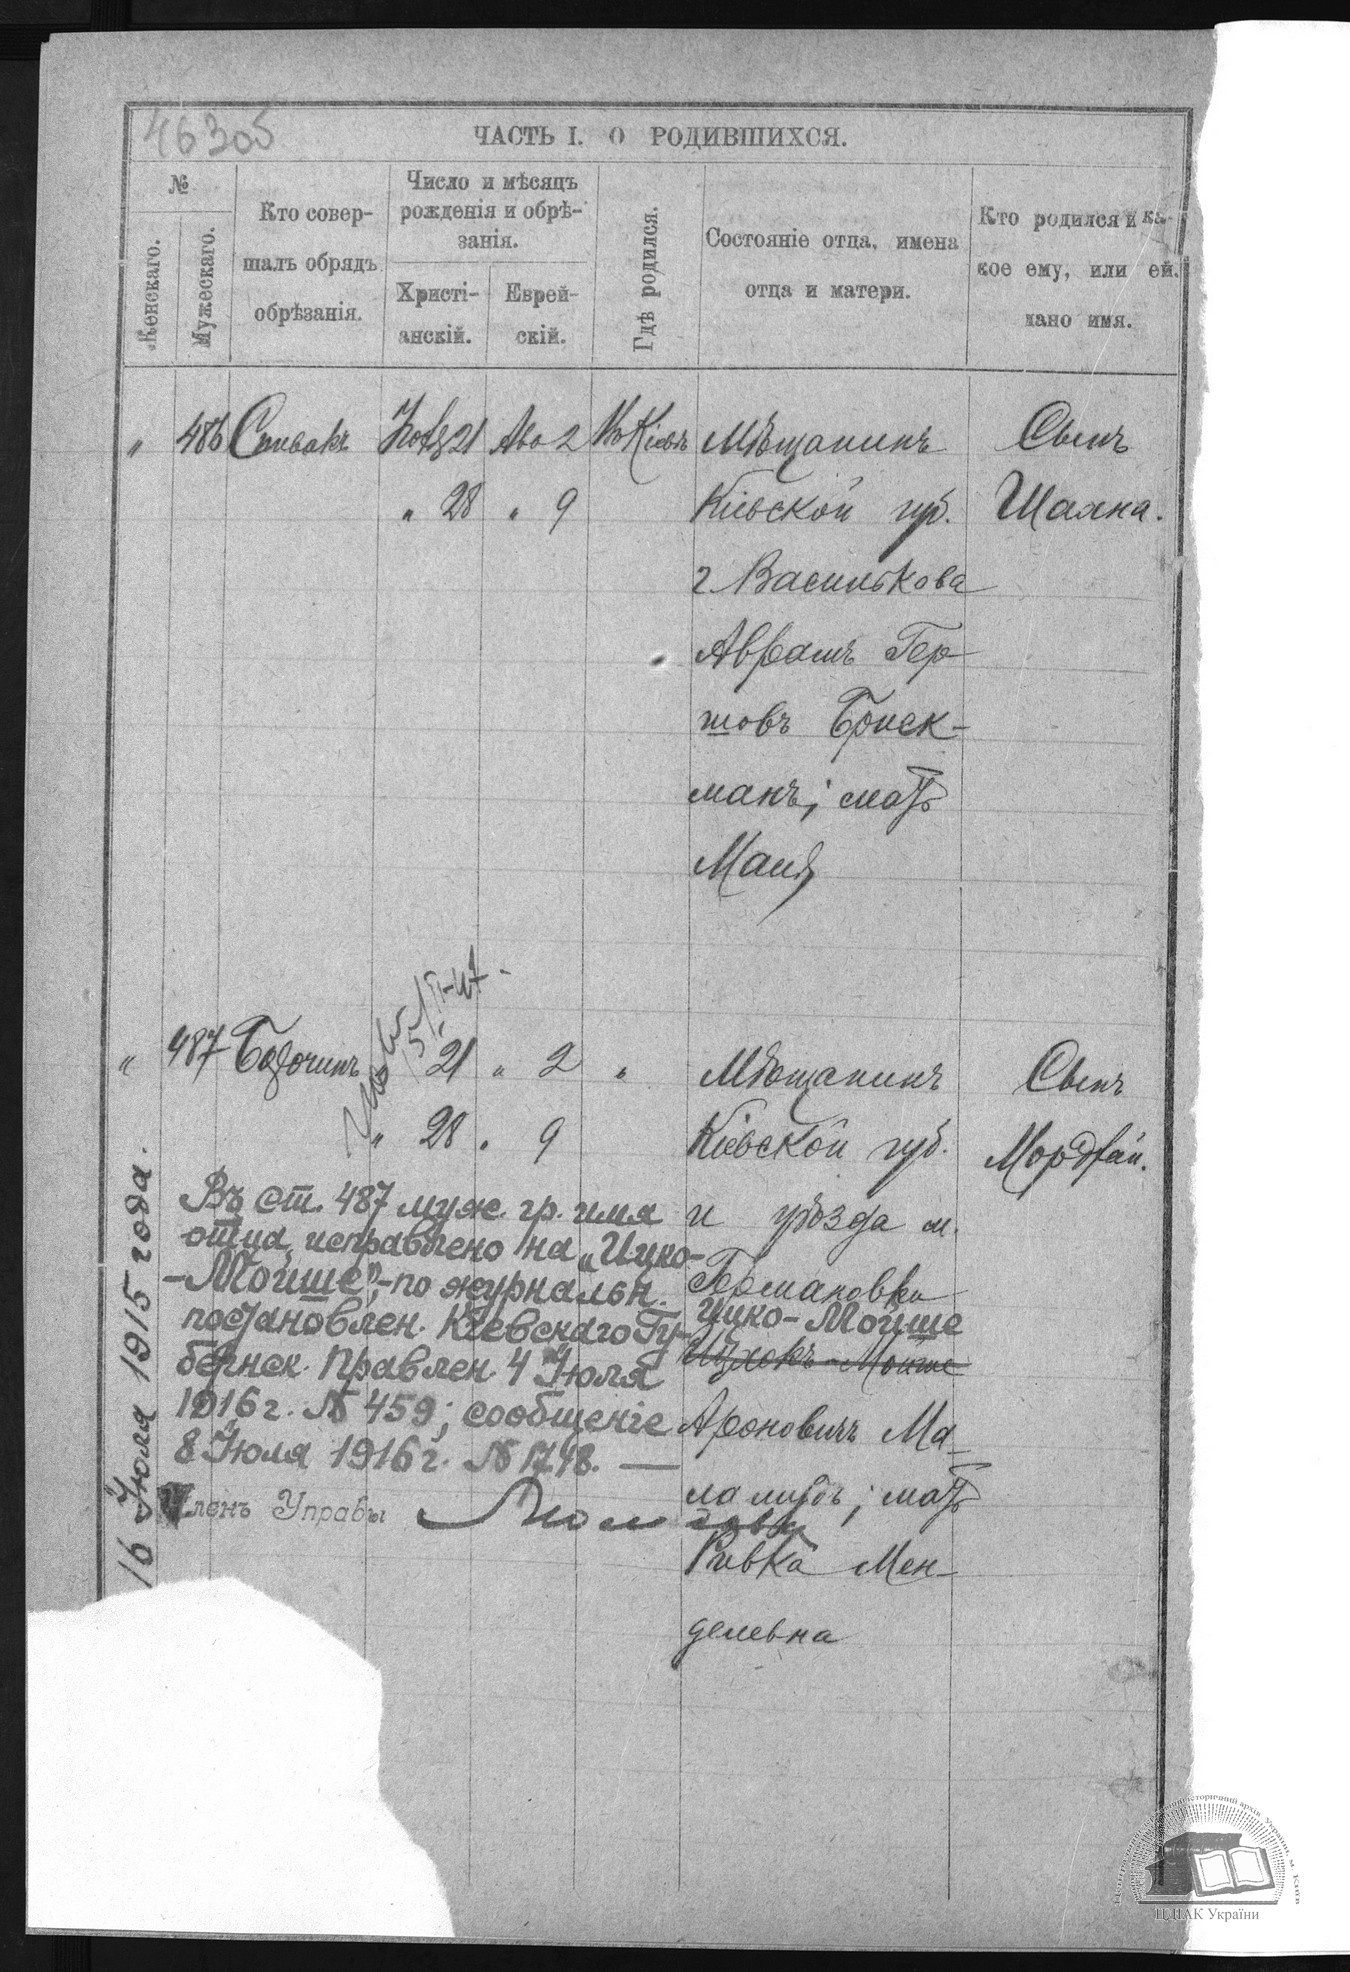 46305
ЧАСТЬ I. О РОДИВШИХСЯ.
№
Женскаго.
Мужескаго.
Кто совер-
шалъ обрядъ
обрѣзанія.
Число и мѣсяцъ
рожденія и обрѣ-
занія.
Христі-
анскій.
Еврей-
скій.
Гдѣ родился.
Состояніе отца, имена
отца и матери.
Кто родился и ка-
кое ему, или ей,
дано имя.
" 486 Спивакъ 21 2 Мѣщанинъ Сынъ
" 28 " 9 Кіевской губ. Шаяна.
г Василькова
Аврамъ Гер-
шовъ
манъ; мать
Маня
" 487 21 " 2 " Мѣщанинъ Сынъ
" 28 " 9 Кіевской губ. Мордхай.
и уѣзда м.
Германовки
Ицко-Мойше
Ицхокъ-Мойше
Ароновичъ Ма-
; мать
Ривка Мен-
делевна
Въ ст. 487 муж. гр. имя
отца, исправлено на „Ицко-
-Мойше", - по журнальн.
постановлен. Кіевскаго Гу-
бернск. Правлен. 4 Іюля
1916 г. № 459; сообщеніе
8 Іюля 1916 г. № 1718. —
Членъ Управы
16 Іюля 1915 года.
ЦДІАК України